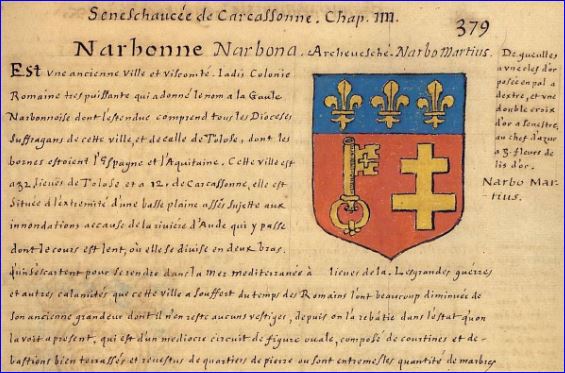 Seneschaucée de Carcassonne. Chap. IIII.
379
Narbonne Narbona. Archevesché. Narbo Martius.
Est une ancienne ville et viscomté. Iadis Colonie
Romaine tres puissante qui a donné le nom a la Gaule
Narbonnoise dont lestendue comprend tous les Dioceses
Suffragans de cette ville, et de celle de Tolose, dont les
bornes estoient l'Espagne et l'Aquitaine. Cette ville est
a 32. lieues de Tolose et a 12. de Carcassonne, elle est
située à l'extremité d'une basse plaine assés sujette aux
innondations accause de la riviére d'Aude qui y passe
dont le cours est lent, où elle se divise en deux bras.
qui sescartent pour se rendre dans la mer mediterranée à lieues de la. Les grandes guérres
et autres calamités que cette ville a souffert du temps des Romains l'ont beaucoup diminuée de
son ancienne grandeur dont il n'en reste aucuns vestiges, depuis on la rebâtie dans lestat qu'on
la voit a present, qui est d'un mediocre circuit de figure ovale, composé de courtines et de
bastions bien terrassés et revestus de quartiers de pierre ou sont entremesles quantité de marbres
De gueulles
a une clef d'or
posée en pal a
dextre, et une
double croix
d'or a senestre,
au chef d'azur
a 3. fleurs de
lis d'or.
Narbo Mar-
tius.